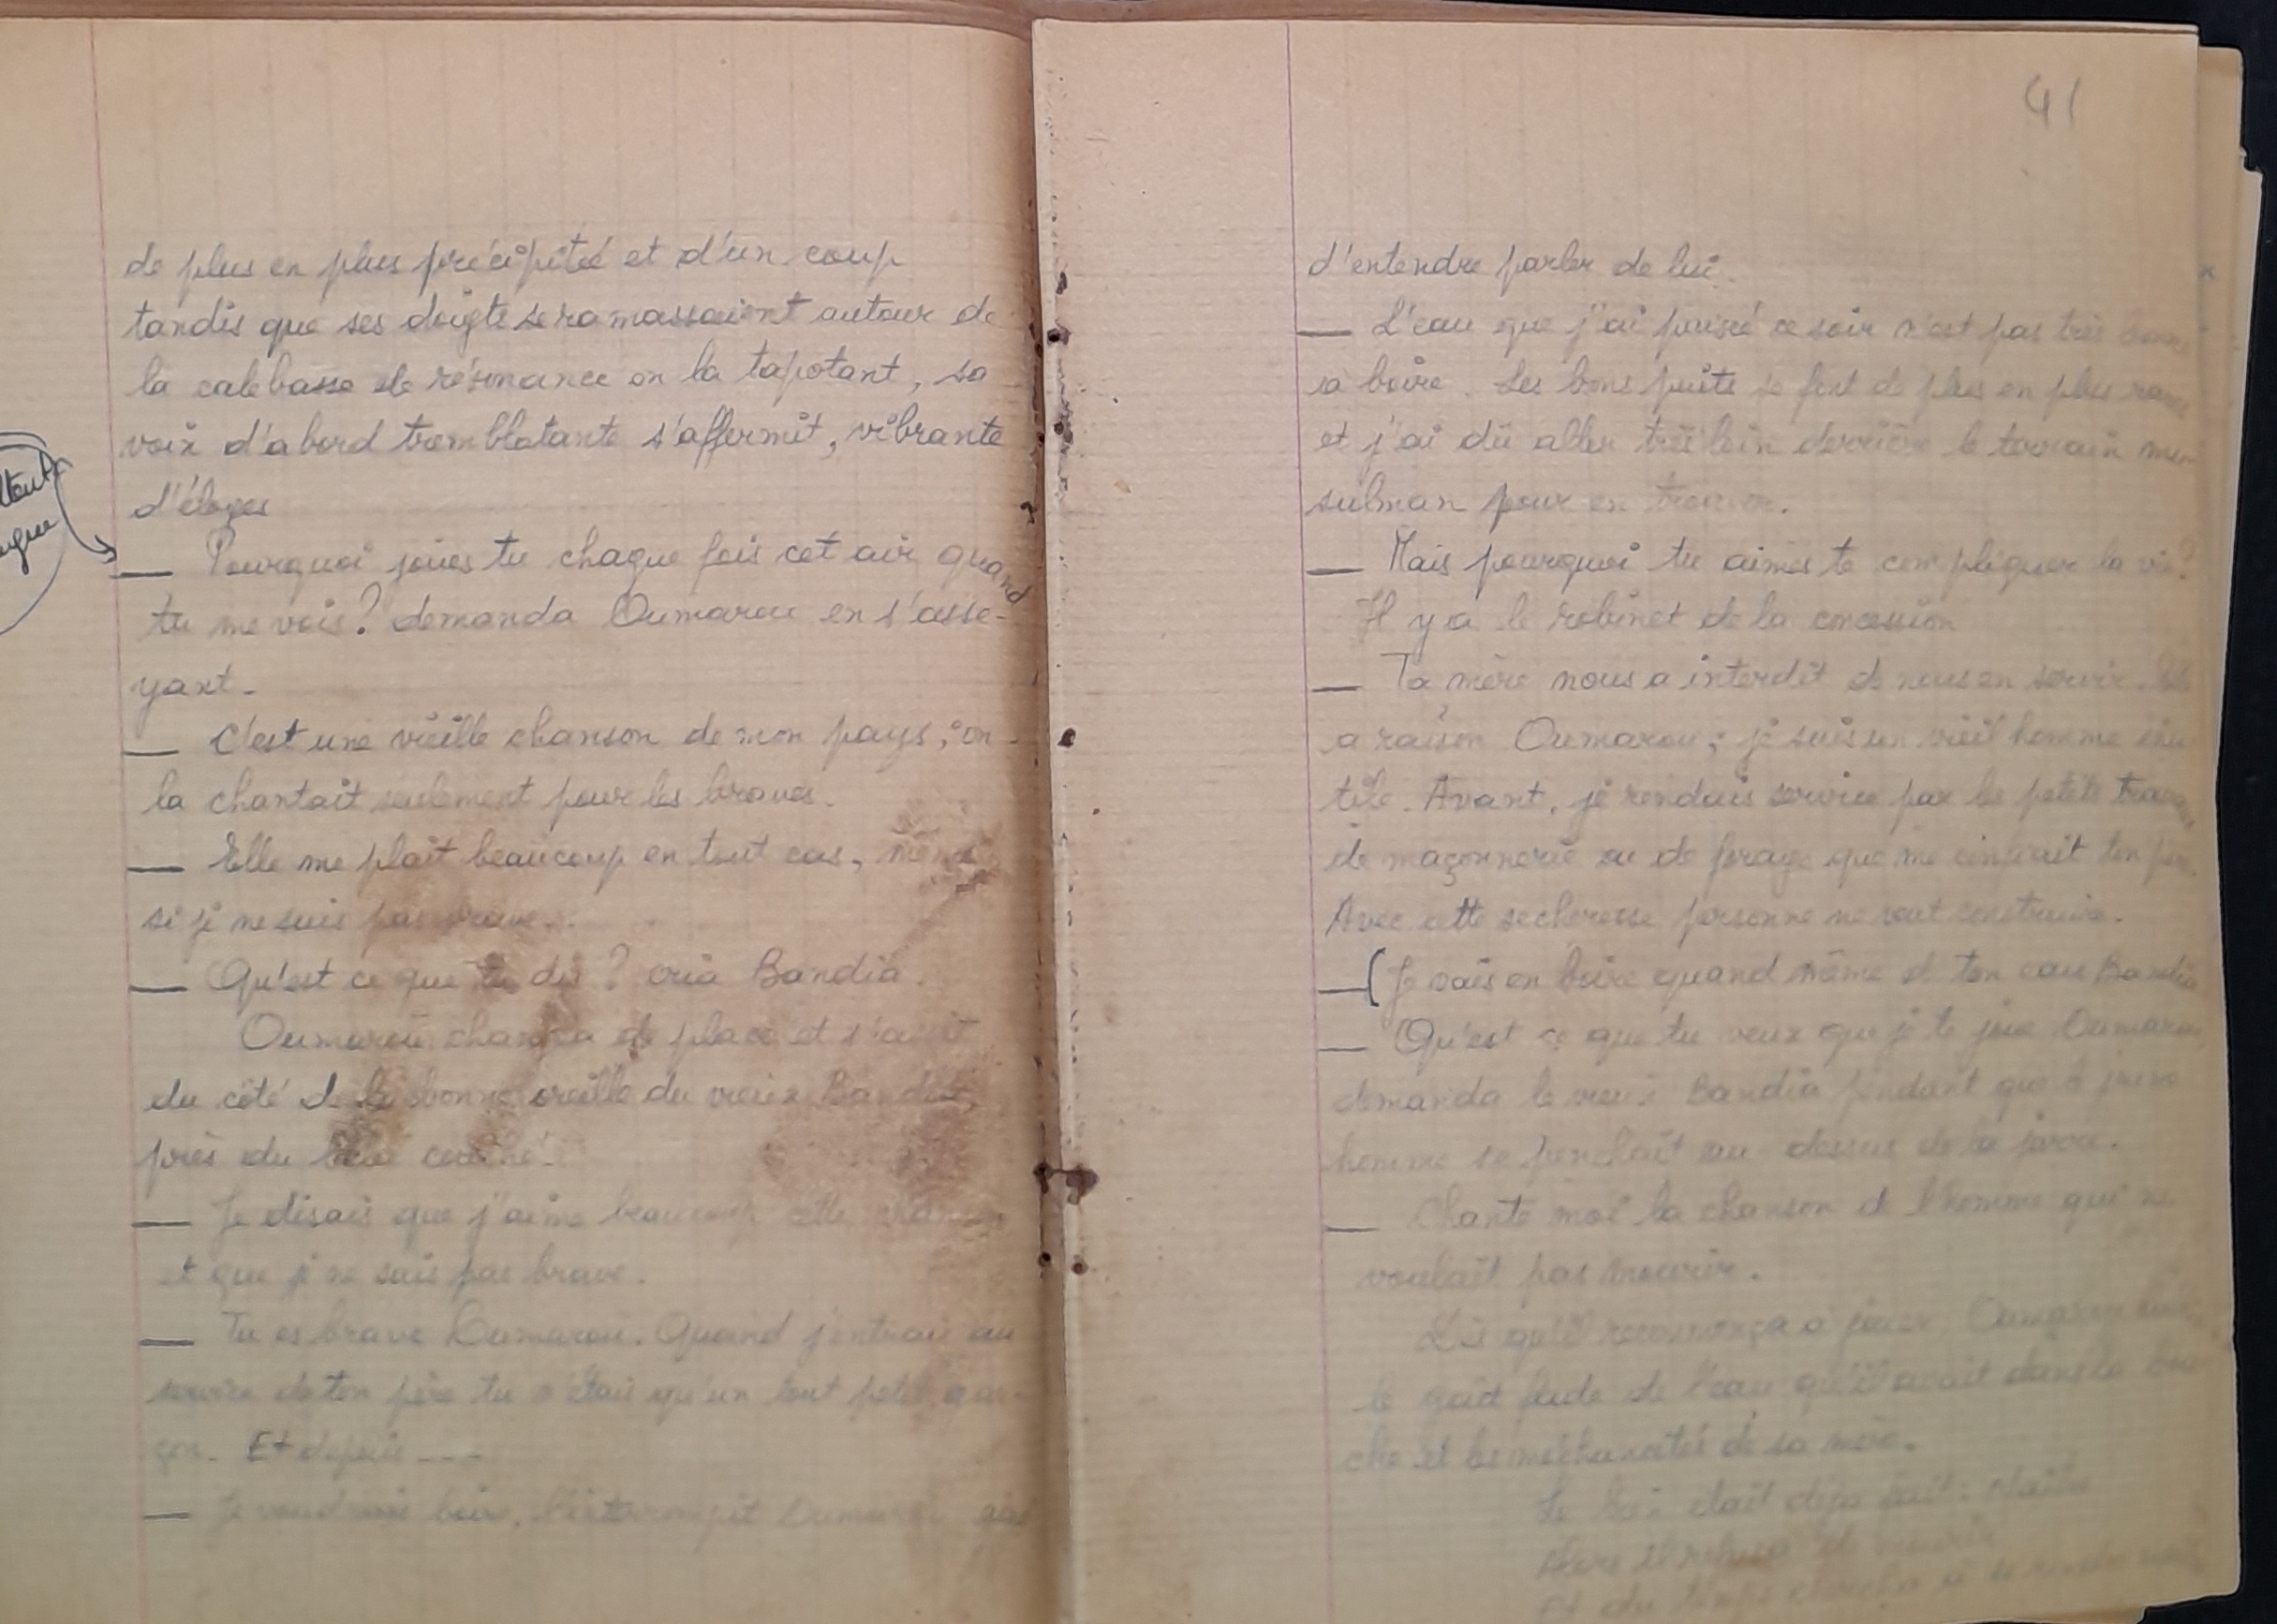 de plus en plus précipité et d'un coup
tandis que ses doigts se ramassaient autour de
la calebasse de résonance en la tapotant, sa
voix d'abord tremblotante s'affermit, vibrante
d'éloges
— Pourquoi joues tu chaque fois cet air quand
tu me vois? demanda Oumarou en s'asse-
yant.
— C'est une vieille chanson de mon pays; on
la chantait seulement pour les braves.
— Elle me plaît beaucoup en tout cas, même
si je ne suis pas brave.
— Qu'est ce que tu dis ? cria Bandia.
Oumarou changea de place et s'assit
du côté de la bonne oreille du vieux Bandia,
près du
— Je disais que j'aime beaucoup cette chanson
et que je ne suis pas brave.
— Tu es brave Oumarou. Quand j'entrais au
service de ton père tu n'étais qu'un tout petit gar-
çon. Et depuis ----
— Je voudrais boire, l'interrompit Oumarou
41
d'entendre parler de lui.
— L'eau que j'ai puisée ce soir n'est pas très bonne
à boire. Les bons puits se font de plus en plus rares
et j'ai dû aller très loin derrière le terrain mu
sulman pour en trouver.
— Mais pourquoi tu aimes te compliquer la vie?
Il y a le robinet de la concession
— Ta mère nous a interdit de nous en servir. Elle
a raison Oumarou; je suis un vieil homme inu
tile. Avant, je rendais service par les petits travaux
de maçonnerie ou de forage que me confiait ton père.
Avec cette secheresse personne ne veut construire.
— ( Je vais en boire quand même de ton eau Bandia
— Qu'est ce que tu veux que je te joue Oumarou
demanda le vieux Bandia pendant que le jeune
homme se penchait au dessus de la jarre.
— Chante moi la chanson de l'homme qui ne
voulait pas mourir.
Dès qu'il recommença à jouer, Oumarou
le goût fade de l'eau qu'il avait dans la bou
che et les méchancetés de sa mère.
était déjà
Alors il refusa de mourir
Et du temps chercha à se rendre